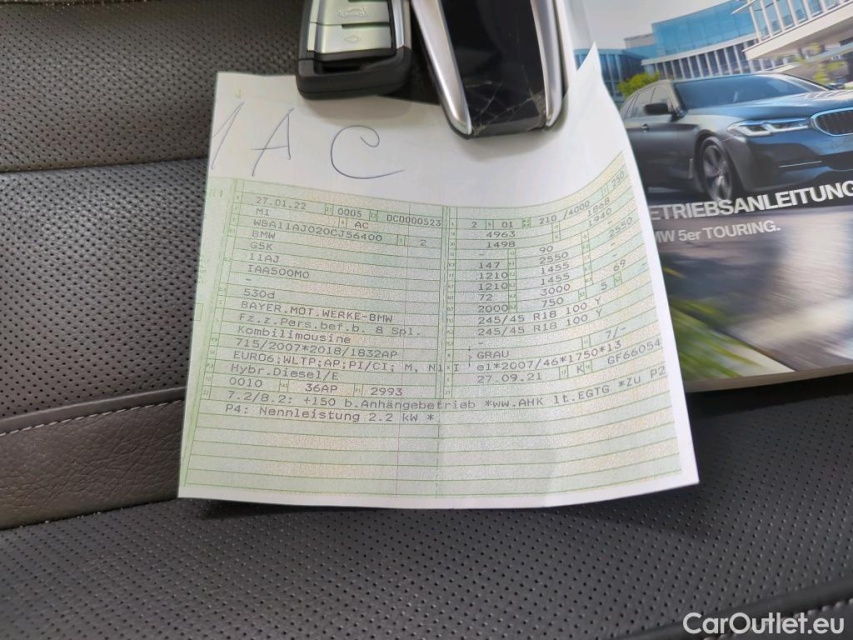 1AC
27.01.22 0005 DCD000523 2 01 210/4000
M1 AC 4963 1868
WBA11AJ020CJ56400 2 1498 90
BMW 147 2550 2550
G5K 1210 1455
11AJ 1210 1455
IAA500M0 72 3000 5 69
- 2000 750
530d 245/45 R18 100 Y
BAYER.MOT.WERKE-BMW 245/45 R18 100 Y
Fz.z.Pers.bef.b. 8 Spl. -
Kombilimousine - 7/-
715/2007*2018/1832AP GRAU
EURO6;WLTP;AP;PI/CI; M, N1 I e1*2007/46*1750*13
Hybr.Diesel/E 27.09.21 K GF66054
0010 36AP 2993
7.2/8.2: +150 b.Anhängebetrieb *ww.AHK lt.EGTG *Zu P2
P4: Nennleistung 2.2 kW *
ETRIEBSANLEITUNG
MW 5er TOURING.
CarOutlet.eu